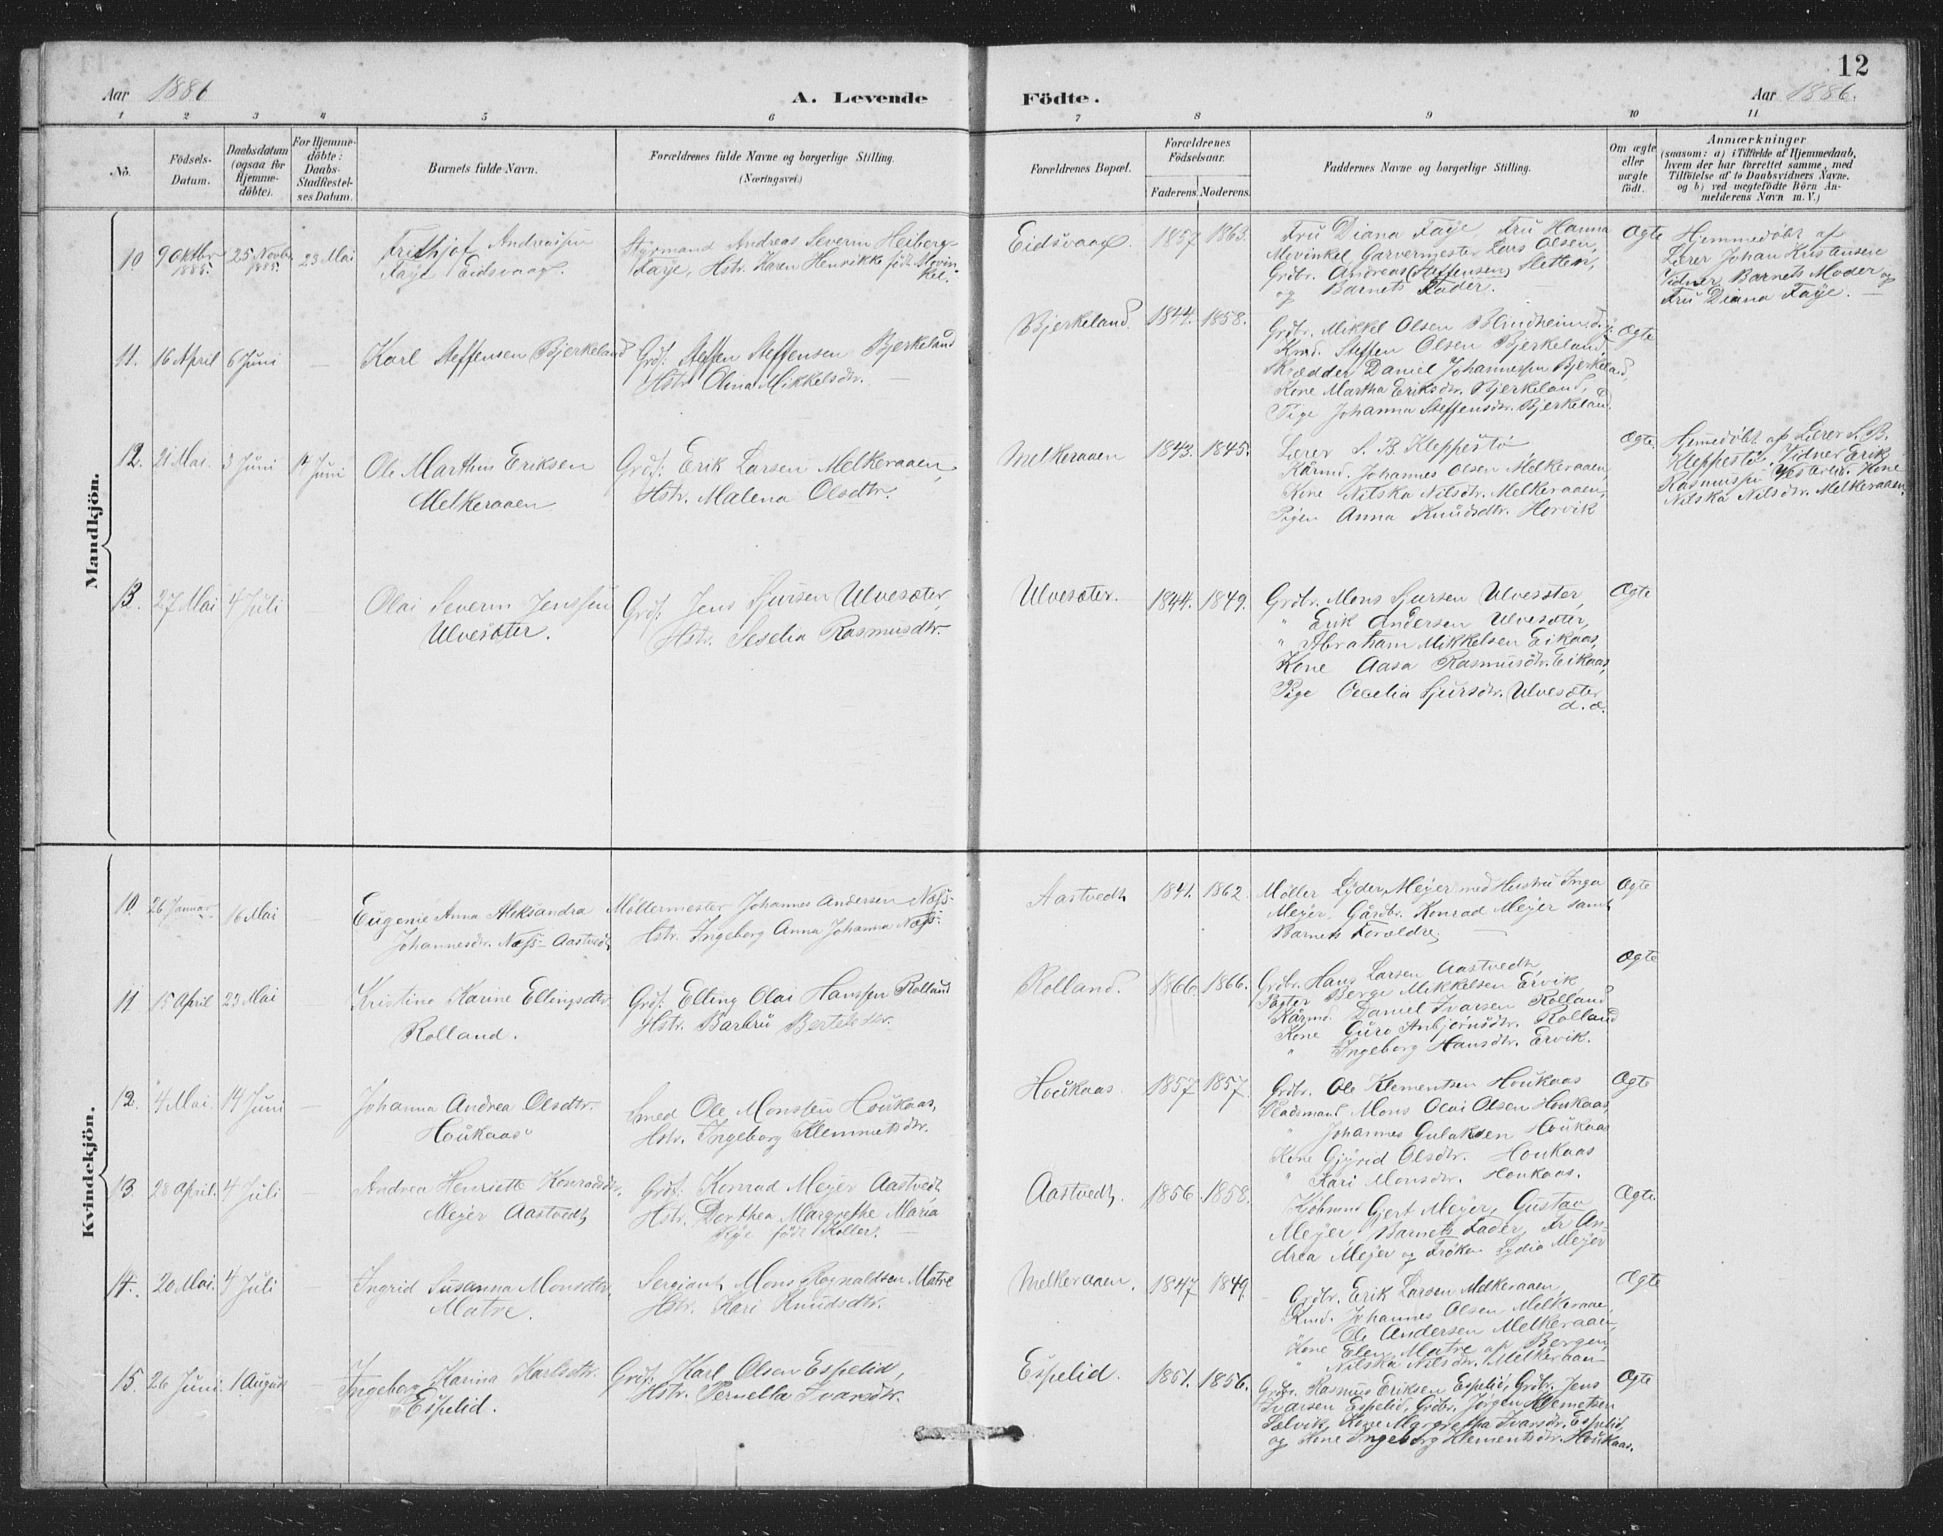 12
Aar 1886
A. Levende Födte.
Aar 1886.
1 2 3 4 5 6 7 8 9 10 11
No.
Födsels-
Datum.
Daabsdatum
(ogsaa for
Hjemme-
döbte).
For Hjemme-
döbte:
Daabs-
Stadfæstel-
ses Datum.
Barnets fulde Navn.
Forældrenes fulde Navne og borgerlige Stilling.
(Næringsvei.)
Forældrenes Bopæl.
Forældrenes
Födselsaar.
Faderens. Moderens.
Faddernes Navne og borgerlige Stilling.
Om ægte
eller
uægte
födt.
Anmærkninger
(saasom: a) i Tilfælde af Hjemmedaab,
hvem der har forrettet samme, med
Tilföielse af to Daabsvidners Navne.
og b) ved uægtefödte Börn An-
melderens Navn m. V.)
Mandkjön.
10 9 Oktbr 1885. 25 Novbr 1885. 23 Mai
Frithjof Andreassen
Faye Eidsvaag.
Styrmand Andreas Severin Heiberg
Faye, Hstr. Karen Henrikke född Mowin-
kel.
Eidsvaag. 1857 1863.
Fru Diana Faye, Fru Hanna
Mowinkel Garvermester Lars Olsen,
Grdbr. Andreas (Steffensen) Sletten,
og Barnets Fader.
Ægte
Hjemmedöbt af
Lærer Johan Kristensen
Vidner Barnets Moder og
Fru Diana Faye.
11. 16 April 6 Juni —
Karl Steffensen Bjerkeland
Grdf. Steffen Steffensen Bjerkeland
Hstr. Olina Mikkelsdtr.
Bjerkeland. 1844. 1858.
Grdbr. Mikkel Olsen Blindheimsd.
Krmd. Steffen Olsen Bjerkeland,
Skrædder Daniel Johannessen Bjerkeland,
Kone Martha Eriksdtr. Bjerkeland,
Pige Johanna Steffensdtr. Bjerkeland.
Ægte
12. 21 Mai. 3 Juni 14 Juni
Ole Marthin Eriksen
Melkeraaen
Grdf. Erik Larsen Melkeraaen,
Hstr. Malena Olsdtr.
Melkeraaen 1843. 1845.
Lærer S. B. Kleppestö
Kårmd. Johannes Olsen Melkeraaen,
Kone Nilska Nilsdtr. Melkeraaen,
Pigen Anna Knudsdtr. Hervik
Ægte.
Hjemmedöbt af Lærer S. B.
Kleppestö. Vidner Erik
Rasmussen Vesterlid. Kone
Nilska Nilsdtr. Melkeraaen.
13. 27 Mai 4 Juli —
Olai Severin Jenssen
Ulvesæter.
Grdf. Jens Sjursen Ulvesæter,
Hstr. Seselia Rasmusdtr.
Ulvesæter. 1844. 1849.
Grdbr. Mons Sjursen Ulvesæter,
" Erik Andersen Ulvesæter,
" Abraham Mikkelsen Eikaas,
Kone Aasa Rasmusdtr. Eikaas,
Pige Cecelia Sjursdtr. Ulvesæter
d. æ.
Ægte
Kvindekjön.
10. 26 Januar 16 Mai —
Eugenie Anna Aleksandra
Johannesdtr. Næss Aastvedt
Möllermester Johannes Andersen Næss
Hstr. Ingeborg Anna Johanna Næss
Aastvedt 1841. 1862.
Møller Lyder Meyer med Hustru Inga
Meyer, Gårdbr. Konrad Meyer samt
Barnets Forældre,
Ægte
11 15 April 23 Mai
Kristine Karine Ellingsdtr.
Rolland.
Grdf. Elling Olai Hanssen Rolland
Hstr. Barbru Bertelsdtr.
Rolland. 1866. 1866.
Grdbr. Hans Larsen Aastvedt,
Pagter Berge Mikkelsen Ervik,
Kårmd. Daniel Ivarsen Rolland
Kone Guro Anbjörnsdtr. Rolland
" Ingeborg Hansdtr. Ervik.
Ægte
12. 4 Mai. 14 Juni —
Johanna Andrea Olsdtr.
Houkaas
Smed Ole Monssen Houkaas,
Hstr. Ingeborg Klemmetsdtr.
Houkaas. 1857 1857.
Grdbr. Ole Klementsen Houkaas
Pladsmand Mons Olai Olsen Houkaas,
" Johannes Gulaksen Houkaas
Kone Gjyrid Olsdtr. Houkaas
" Kari Monsdtr. Houkaas.
Ægte
13 28 April. 4 Juli —
Andrea Henriette Konradsdtr.
Meyer Aastvedt
Grdf. Konrad Meyer Aastvedt
Hstr. Dorthea Margrethe Maria
Rye född Koller.
Aastvedt. 1856. 1858.
Købmnd Gjert Meyer, Gustav
Meyer, Barnets Fader, Fr An-
drea Meyer og Frøken Lydia Meyer
Ægte.
14. 20 Mai. 4 Juli —
Ingrid Susanna Monsdtr.
Matre.
Sergiant Mons Rognaldsen Matre
Hstr. Kari Knudsdtr.
Melkeraaen. 1847 1849.
Grdbr. Erik Larsen Melkeraaen,
Krmd. Johannes Olsen Melkeraaen,
" Ole Andersen Melkeraaen,
Kone Elen Matre af Bergen,
" Nilska Nilsdtr. Melkeraaen
Ægte
15. 26 Juni. 1 August —
Ingeborg Karina Karlsdtr.
Espelid.
Grdf. Karl Olsen Espelid,
Hstr. Pernella Ivarsdtr.
Espelid. 1851. 1856.
Grdbr. Rasmus Eriksen Espelid, Grdbr. Jens
Ivarsen Espelid, Grdbr. Jørgen Klemetsen
Selvik, Kone Margretha Ivarsdtr. Espelid
og Kone Ingeborg Klementsdtr. Houkaas.
Ægte